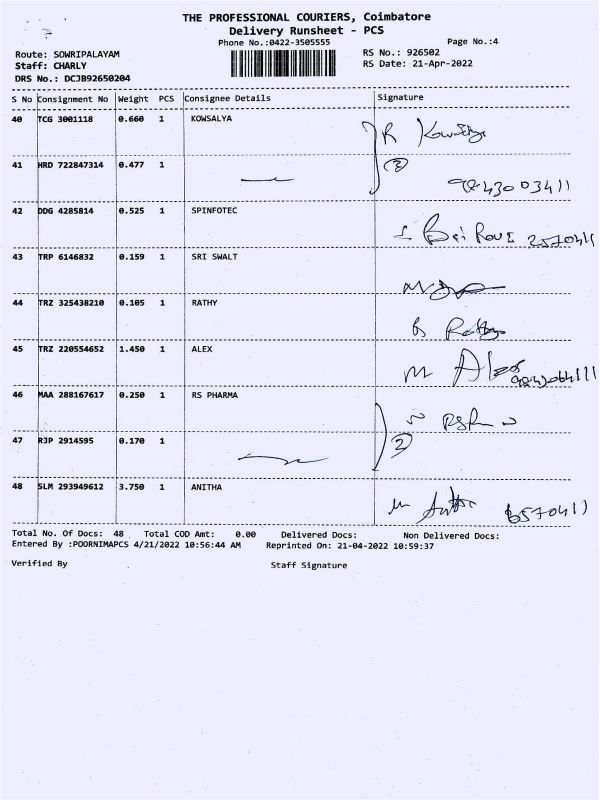 THE PROFESSIONAL COURIERS, Coimbatore
Delivery Runsheet - PCS
Phone No.:0422-3505555
Page No.:4
Route: SOWRIPALAYAM
RS No.: 926502
Staff: CHARLY
RS Date: 21-Apr-2022
DRS No.: DCJB92650204
S No Consignment No Weight PCS Consignee Details Signature
40 TCG 3001118 0.660 1 KOWSALYA R Kowsalya
41 HRD 722847314 0.477 1 2
42 DDG 4285814 0.525 1 SPINFOTEC
2570411
43 TRP 6146832 0.159 1 SRI SWALT
44 TRZ 325438210 0.105 1 RATHY
45 TRZ 220554652 1.450 1 ALEX
M Alex
46 MAA 288167617 0.250 1 RS PHARMA
47 RJP 2914595 0.170 1 2
48 SLM 293949612 3.750 1 ANITHA
Total No. Of Docs: 48 Total COD Amt: 0.00 Delivered Docs: Non Delivered Docs:
Entered By :POORNIMAPCS 4/21/2022 10:56:44 AM Reprinted On: 21-04-2022 10:59:37
Verified By Staff Signature